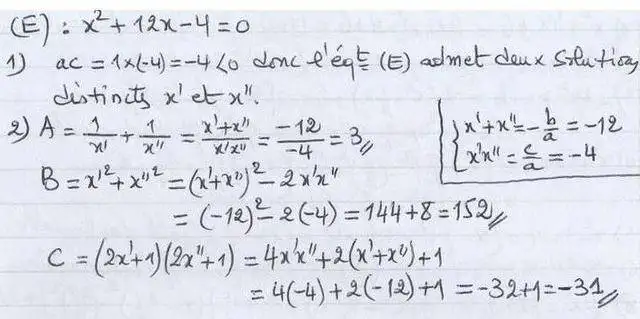 (E) : x² + 12x - 4 = 0
1) ac = 1×(-4) = -4 < 0 donc l'éqt (E) admet deux solutions
distincts x' et x".
2) A = 1/x' + 1/x" = (x'+x")/(x'x") = -12/-4 = 3
{ x'+x" = -b/a = -12
x'x" = c/a = -4
B = x'² + x"² = (x'+x")² - 2x'x"
= (-12)² - 2(-4) = 144 + 8 = 152
C = (2x'+1)(2x"+1) = 4x'x" + 2(x'+x") + 1
= 4(-4) + 2(-12) + 1 = -32+1 = -31